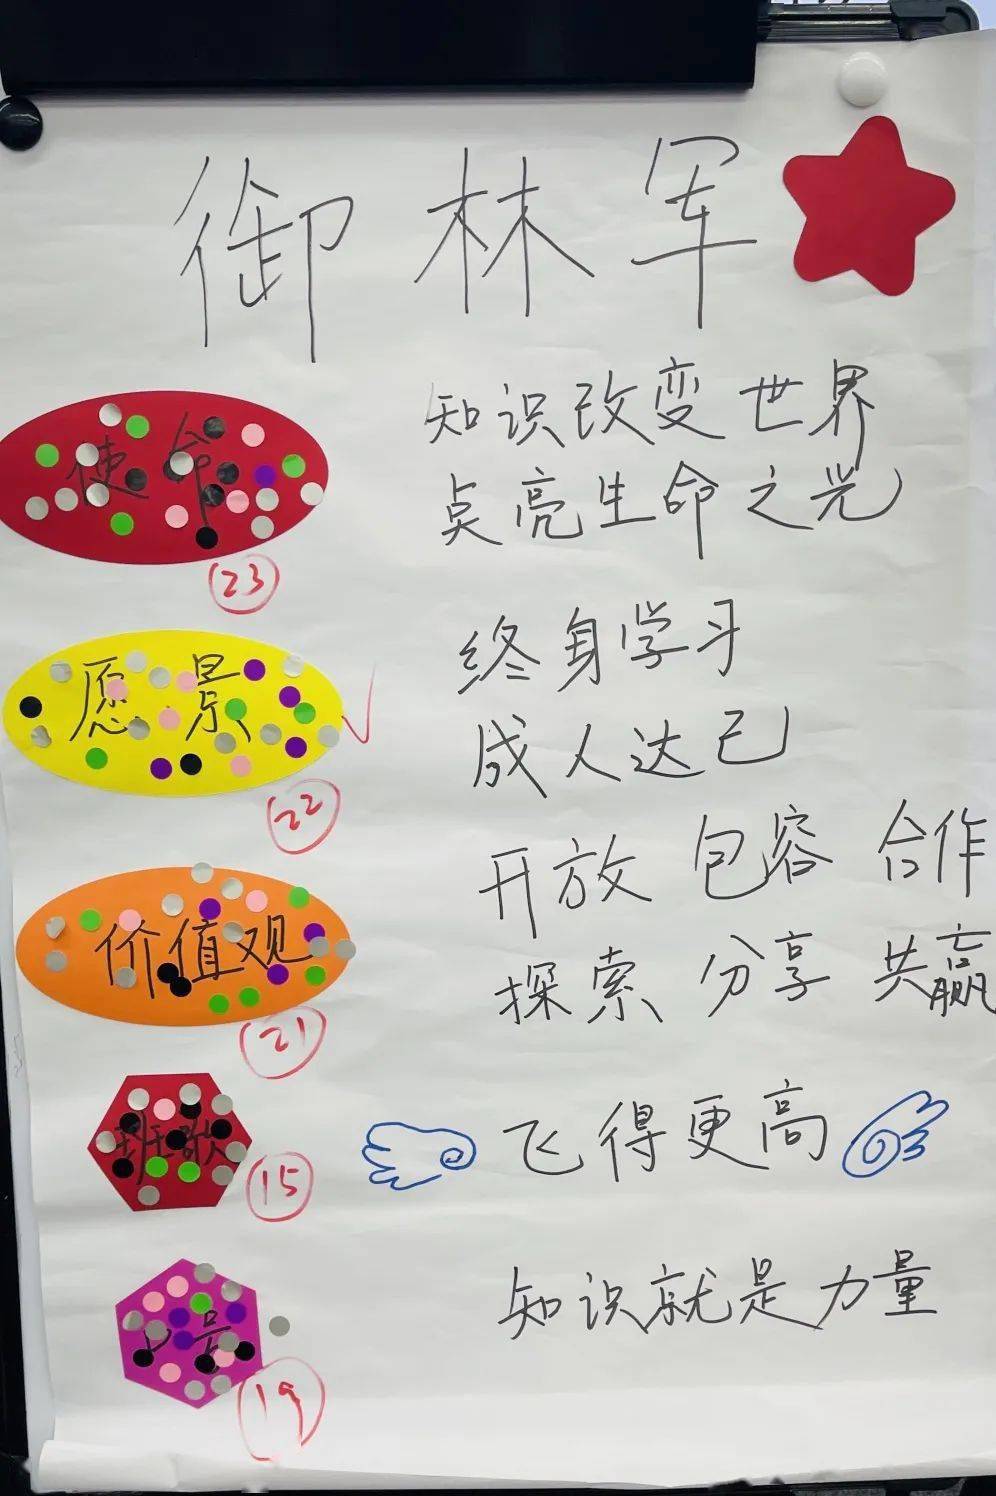 御林军
使命
知识改变世界
点亮生命之光
23
愿景
终身学习
成人达己
22
价值观
开放 包容 合作
探索 分享 共赢
21
班歌
飞得更高
15
口号
知识就是力量
19